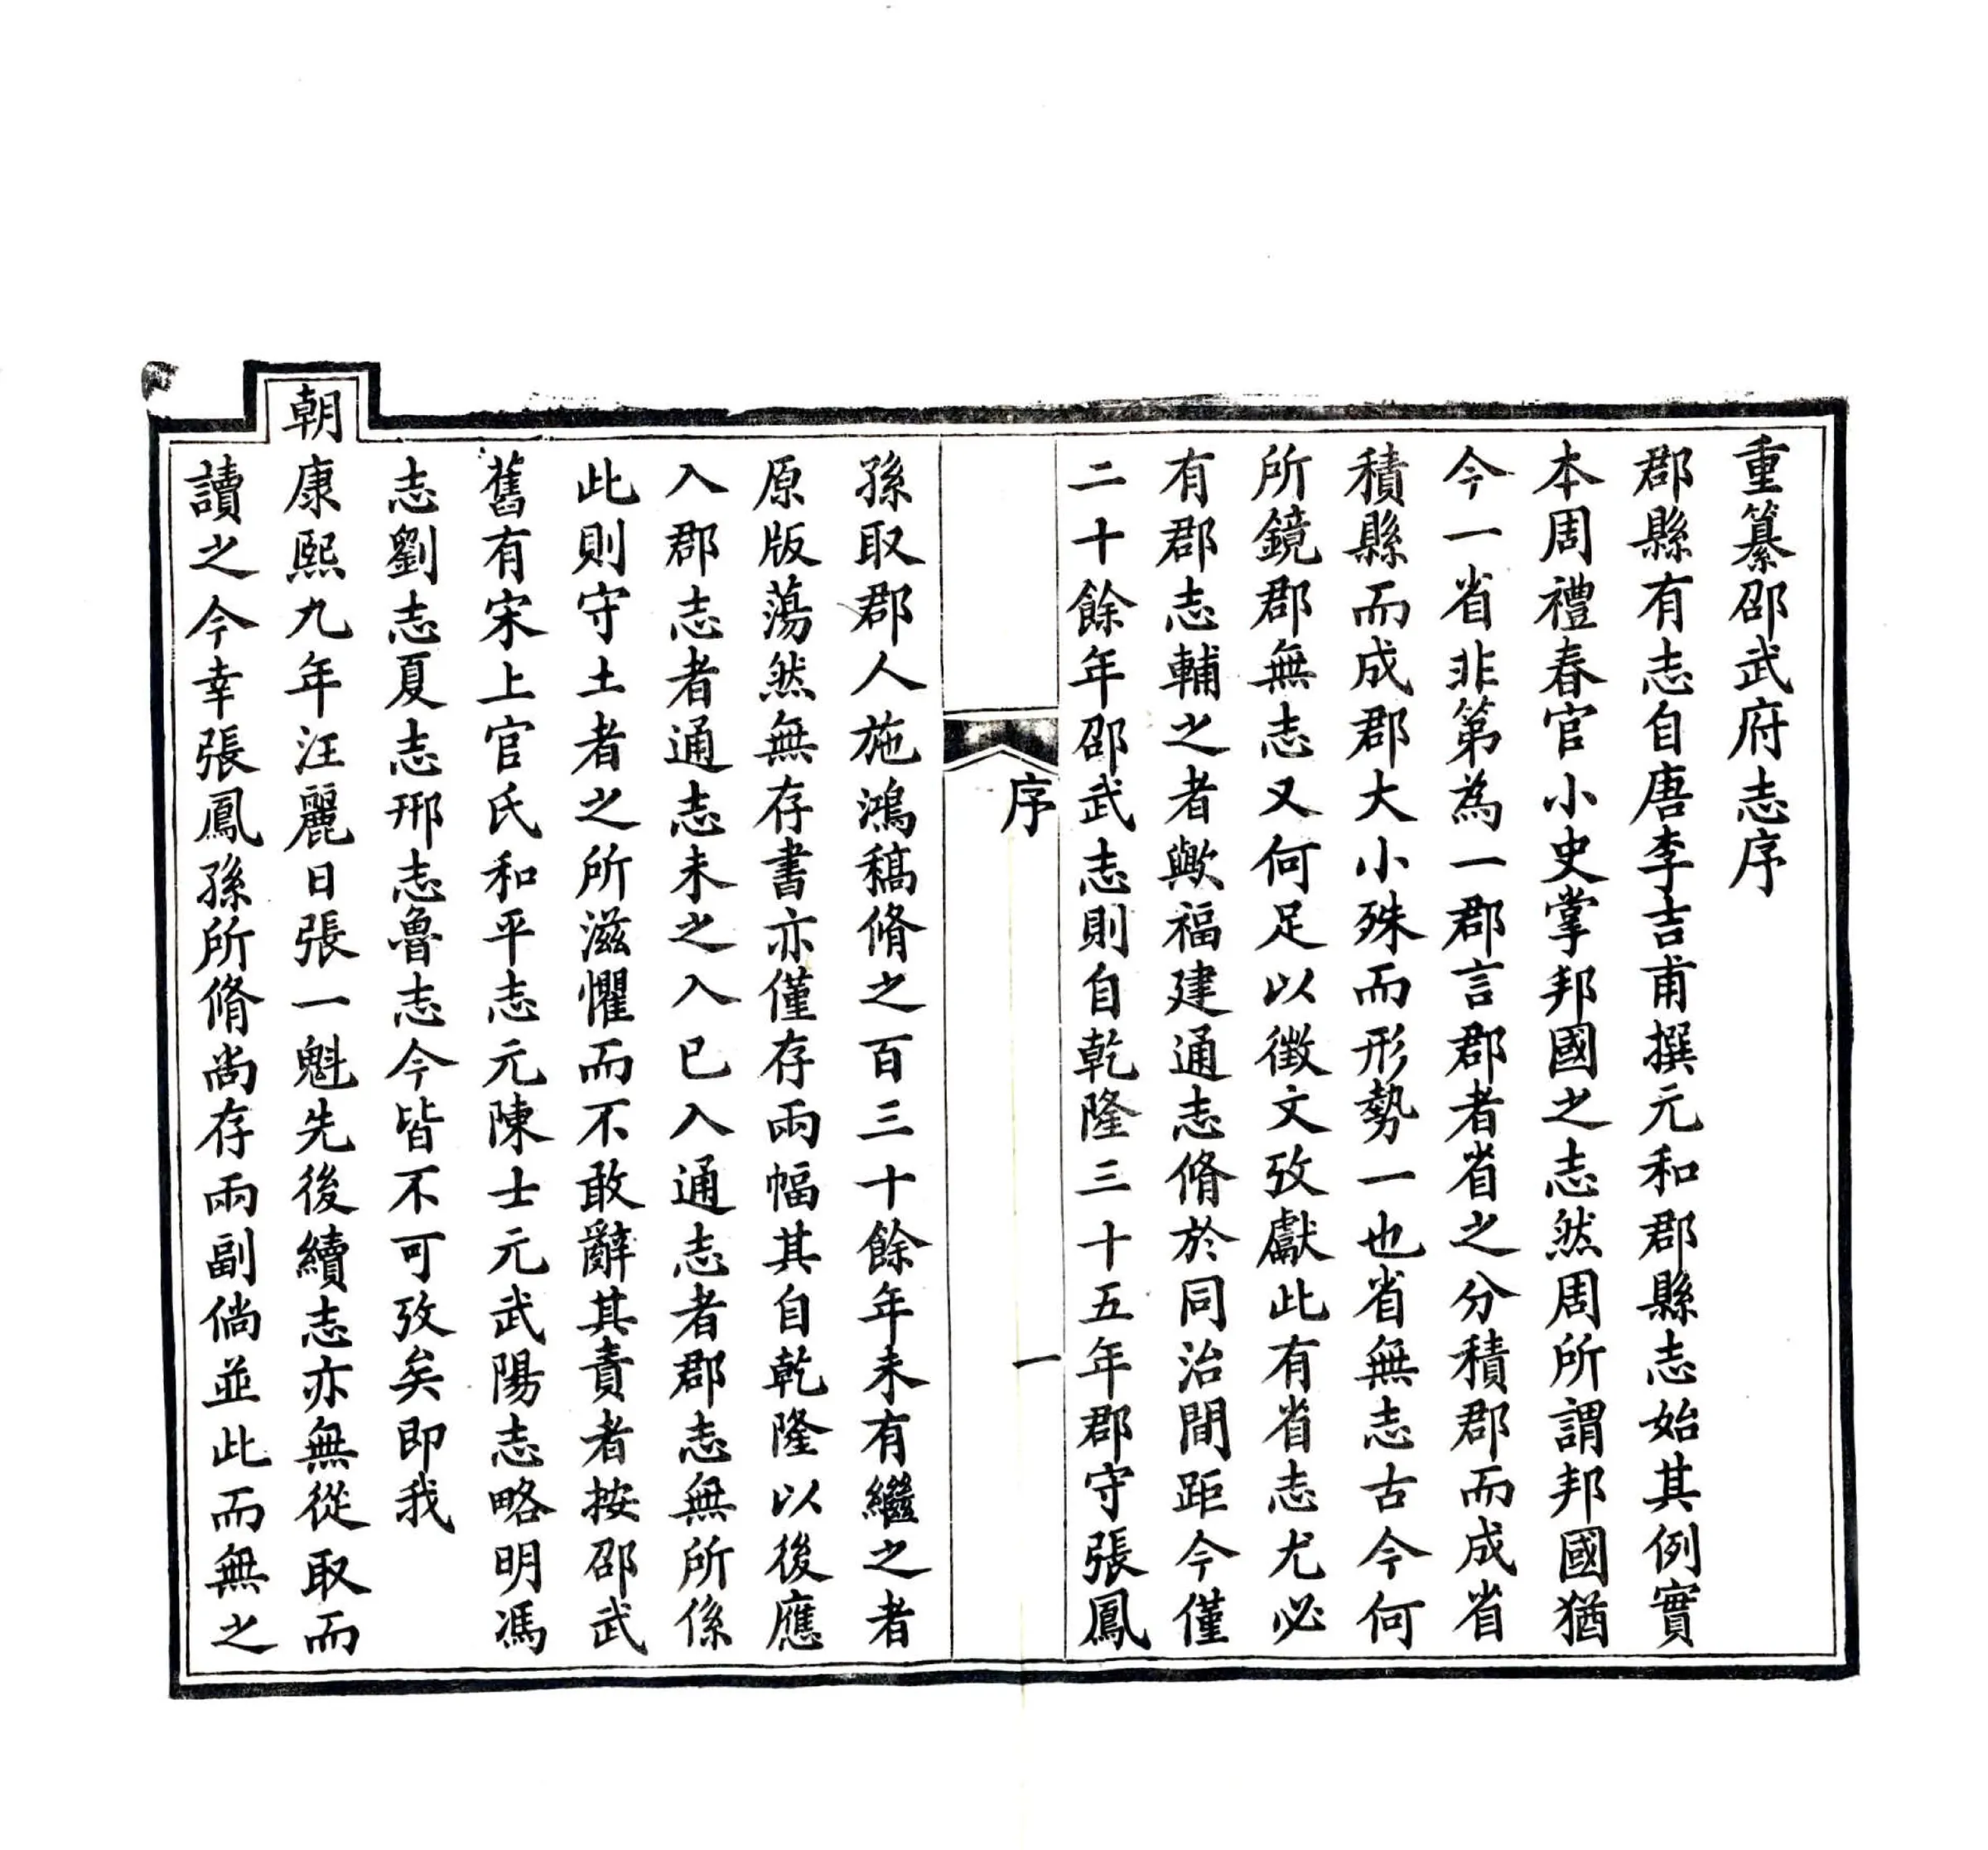 重纂邵武府志序
郡縣有志自唐李吉甫撰元和郡縣志始其例實
本周禮春官小史掌邦國之志然周所謂邦國猶
今一省非第為一郡言郡者省之分積郡而成省
積縣而成郡大小殊而形勢一也省無志古今何
所鏡郡無志又何足以徵文攷獻此有省志尤必
有郡志輔之者歟福建通志脩於同治間距今僅
二十餘年邵武志則自乾隆三十五年郡守張鳳
序
一
孫取郡人施鴻稿脩之百三十餘年未有繼之者
原版蕩然無存書亦僅存兩幅其自乾隆以後應
入郡志者通志未之入已入通志者郡志無所係
此則守土者之所滋懼而不敢辭其責者按邵武
舊有宋上官氏和平志元陳士元武陽志略明馮
志劉志夏志邢志魯志今皆不可攷矣即我
朝康熙九年汪麗日張一魁先後續志亦無從取而
讀之今幸張鳳孫所脩尚存兩副倘並此而無之